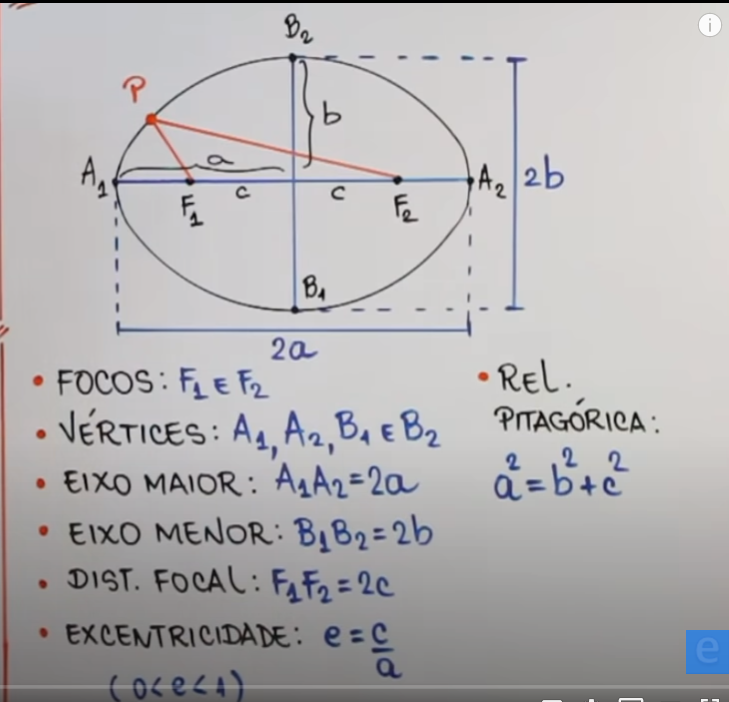 B₂
P
b
a
A₁
A₂
2b
c
c
F₁
F₂
B₁
2a
• FOCOS: F₁ E F₂
• VÉRTICES: A₁, A₂, B₁ E B₂
• EIXO MAIOR: A₁A₂=2a
• EIXO MENOR: B₁B₂=2b
• DIST. FOCAL: F₁F₂=2c
• EXCENTRICIDADE: e=c/a
(0<e<1)
• REL.
PITAGÓRICA:
a²=b²+c²
e